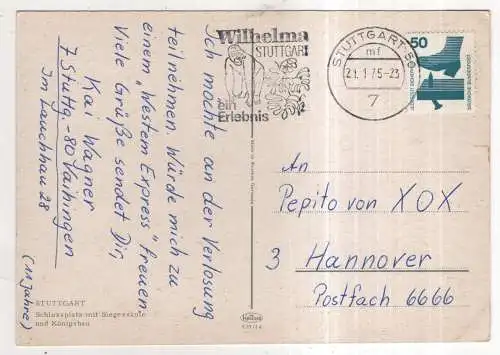 Ich möchte an der Verlosung
teilnehmen. Würde mich zu
einem „Western Express" freuen
Viele Grüße sendet Dir,
Kai Wagner
7 Stuttg.-80 Vaihingen
Im Lauchhau 28
(11 Jahre)
Wilhelma
STUTTGART
ein
Erlebnis
STUTTGART-80
mf
21.1.75-23
7
50
DEUTSCHE BUNDESPOST
An
Pepito von XOX
3 Hannover
Postfach 6666
STUTTGART
Schlossplatz mit Siegessäule
und Königsbau